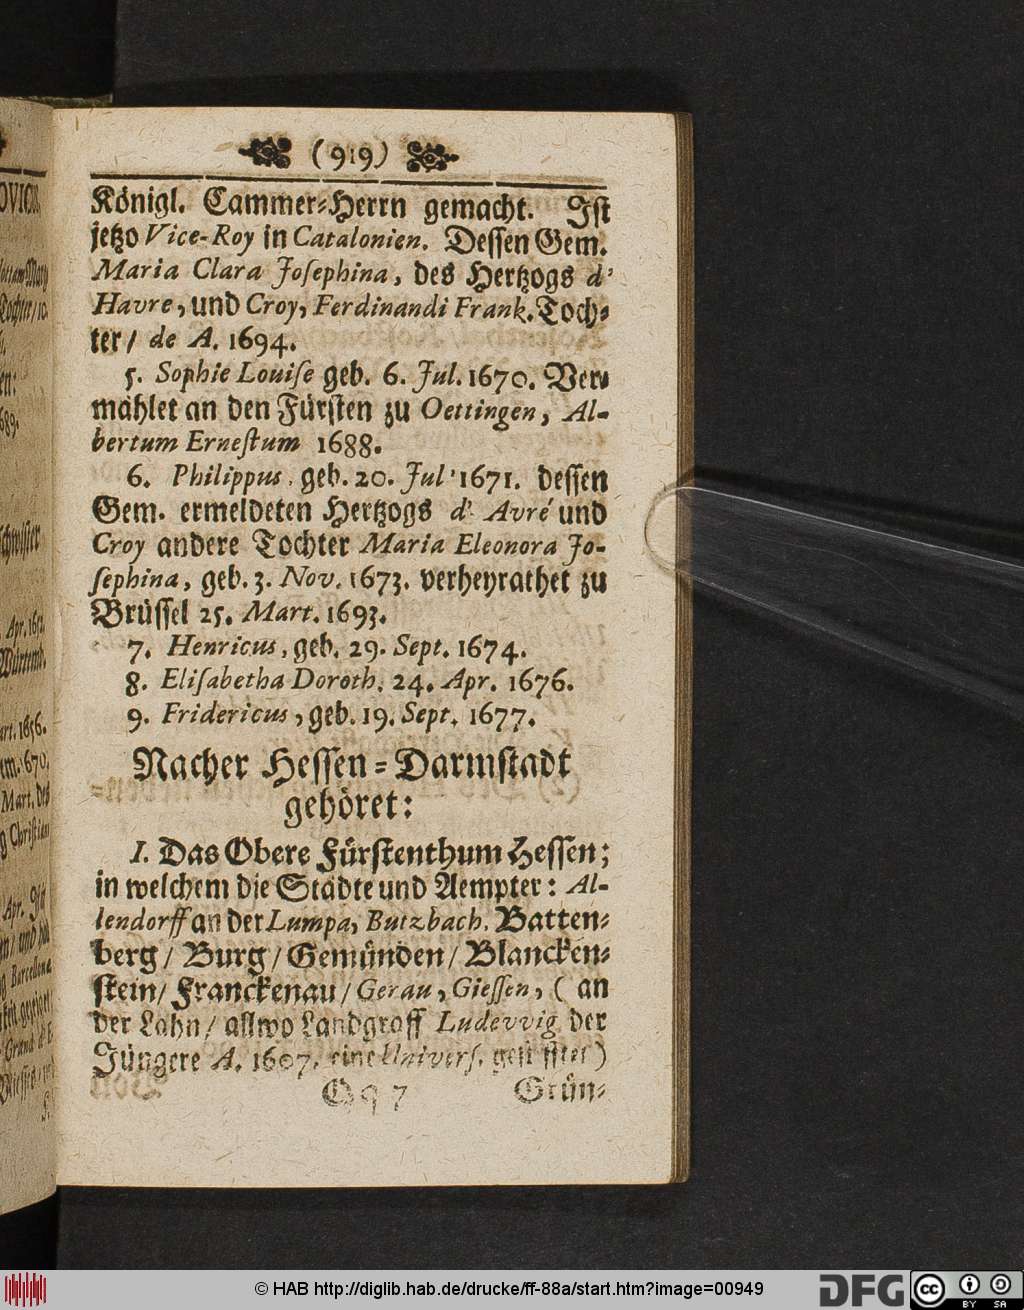 (919)
Königl. Cammer-Herrn gemacht. Ist
jetzo Vice-Roy in Catalonien. Dessen Gem.
Maria Clara Josephina, des Hertzogs d'
Havre, und Croy, Ferdinandi Frank. Toch-
ter / de A. 1694.
5. Sophie Louise geb. 6. Jul. 1670. Ver-
mählet an den Fürsten zu Oettingen, Al-
bertum Ernestum 1688.
6. Philippus, geb. 20. Jul. 1671. dessen
Gem. ermeldeten Hertzogs d' Avré und
Croy andere Tochter Maria Eleonora Jo-
sephina, geb. 3. Nov. 1673. verheyrathet zu
Brüssel 25. Mart. 1693.
7. Henricus, geb. 29. Sept. 1674.
8. Elisabetha Doroth. 24. Apr. 1676.
9. Fridericus, geb. 19. Sept. 1677.
Nacher Hessen-Darmstadt
gehöret:
I. Das Obere Fürstenthum Hessen;
in welchem die Städte und Aempter: Al-
lendorff an der Lumpa, Butzbach, Batten-
berg / Burg / Gemünden / Blancken-
stein / Franckenau / Gerau, Giessen, (an
der Lahn / allwo Landgraff Ludevvig der
Jüngere A. 1607. eine Univers. gestifftet)
Qq 7 Grün-
© HAB http://diglib.hab.de/drucke/ff-88a/start.htm?image=00949
DFG
cc BY SA